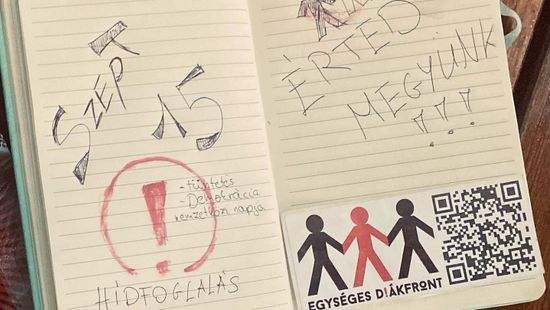 SZÉPT
15
!
- tüntetés
- Demokrácia
nemzetközi napja
HÍDFOGLALÁS
ÉRTED
MEGYÜNK
!!!
EGYSÉGES D!ÁKFRONT